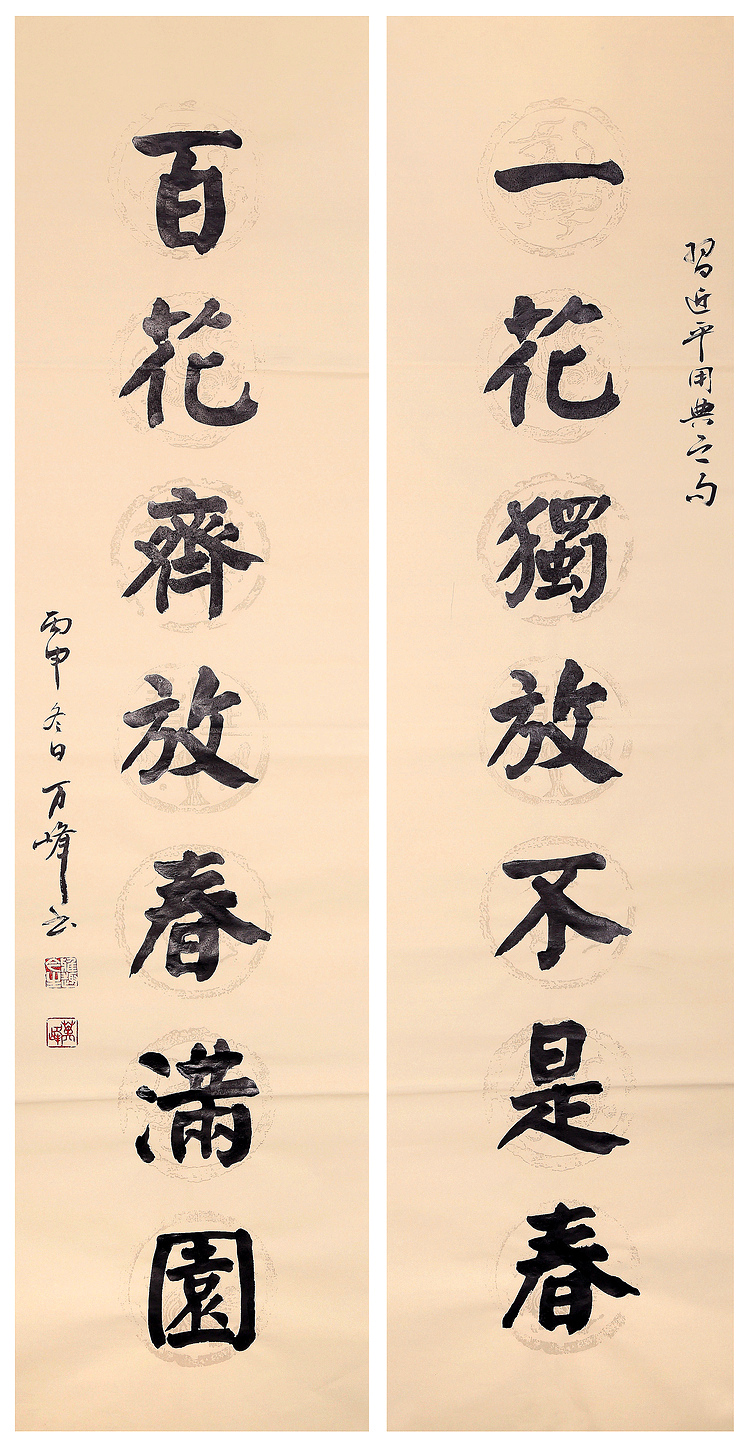 習近平用典之句
一花獨放不是春
百花齊放春滿園
丙申冬日万峰书
萬峰